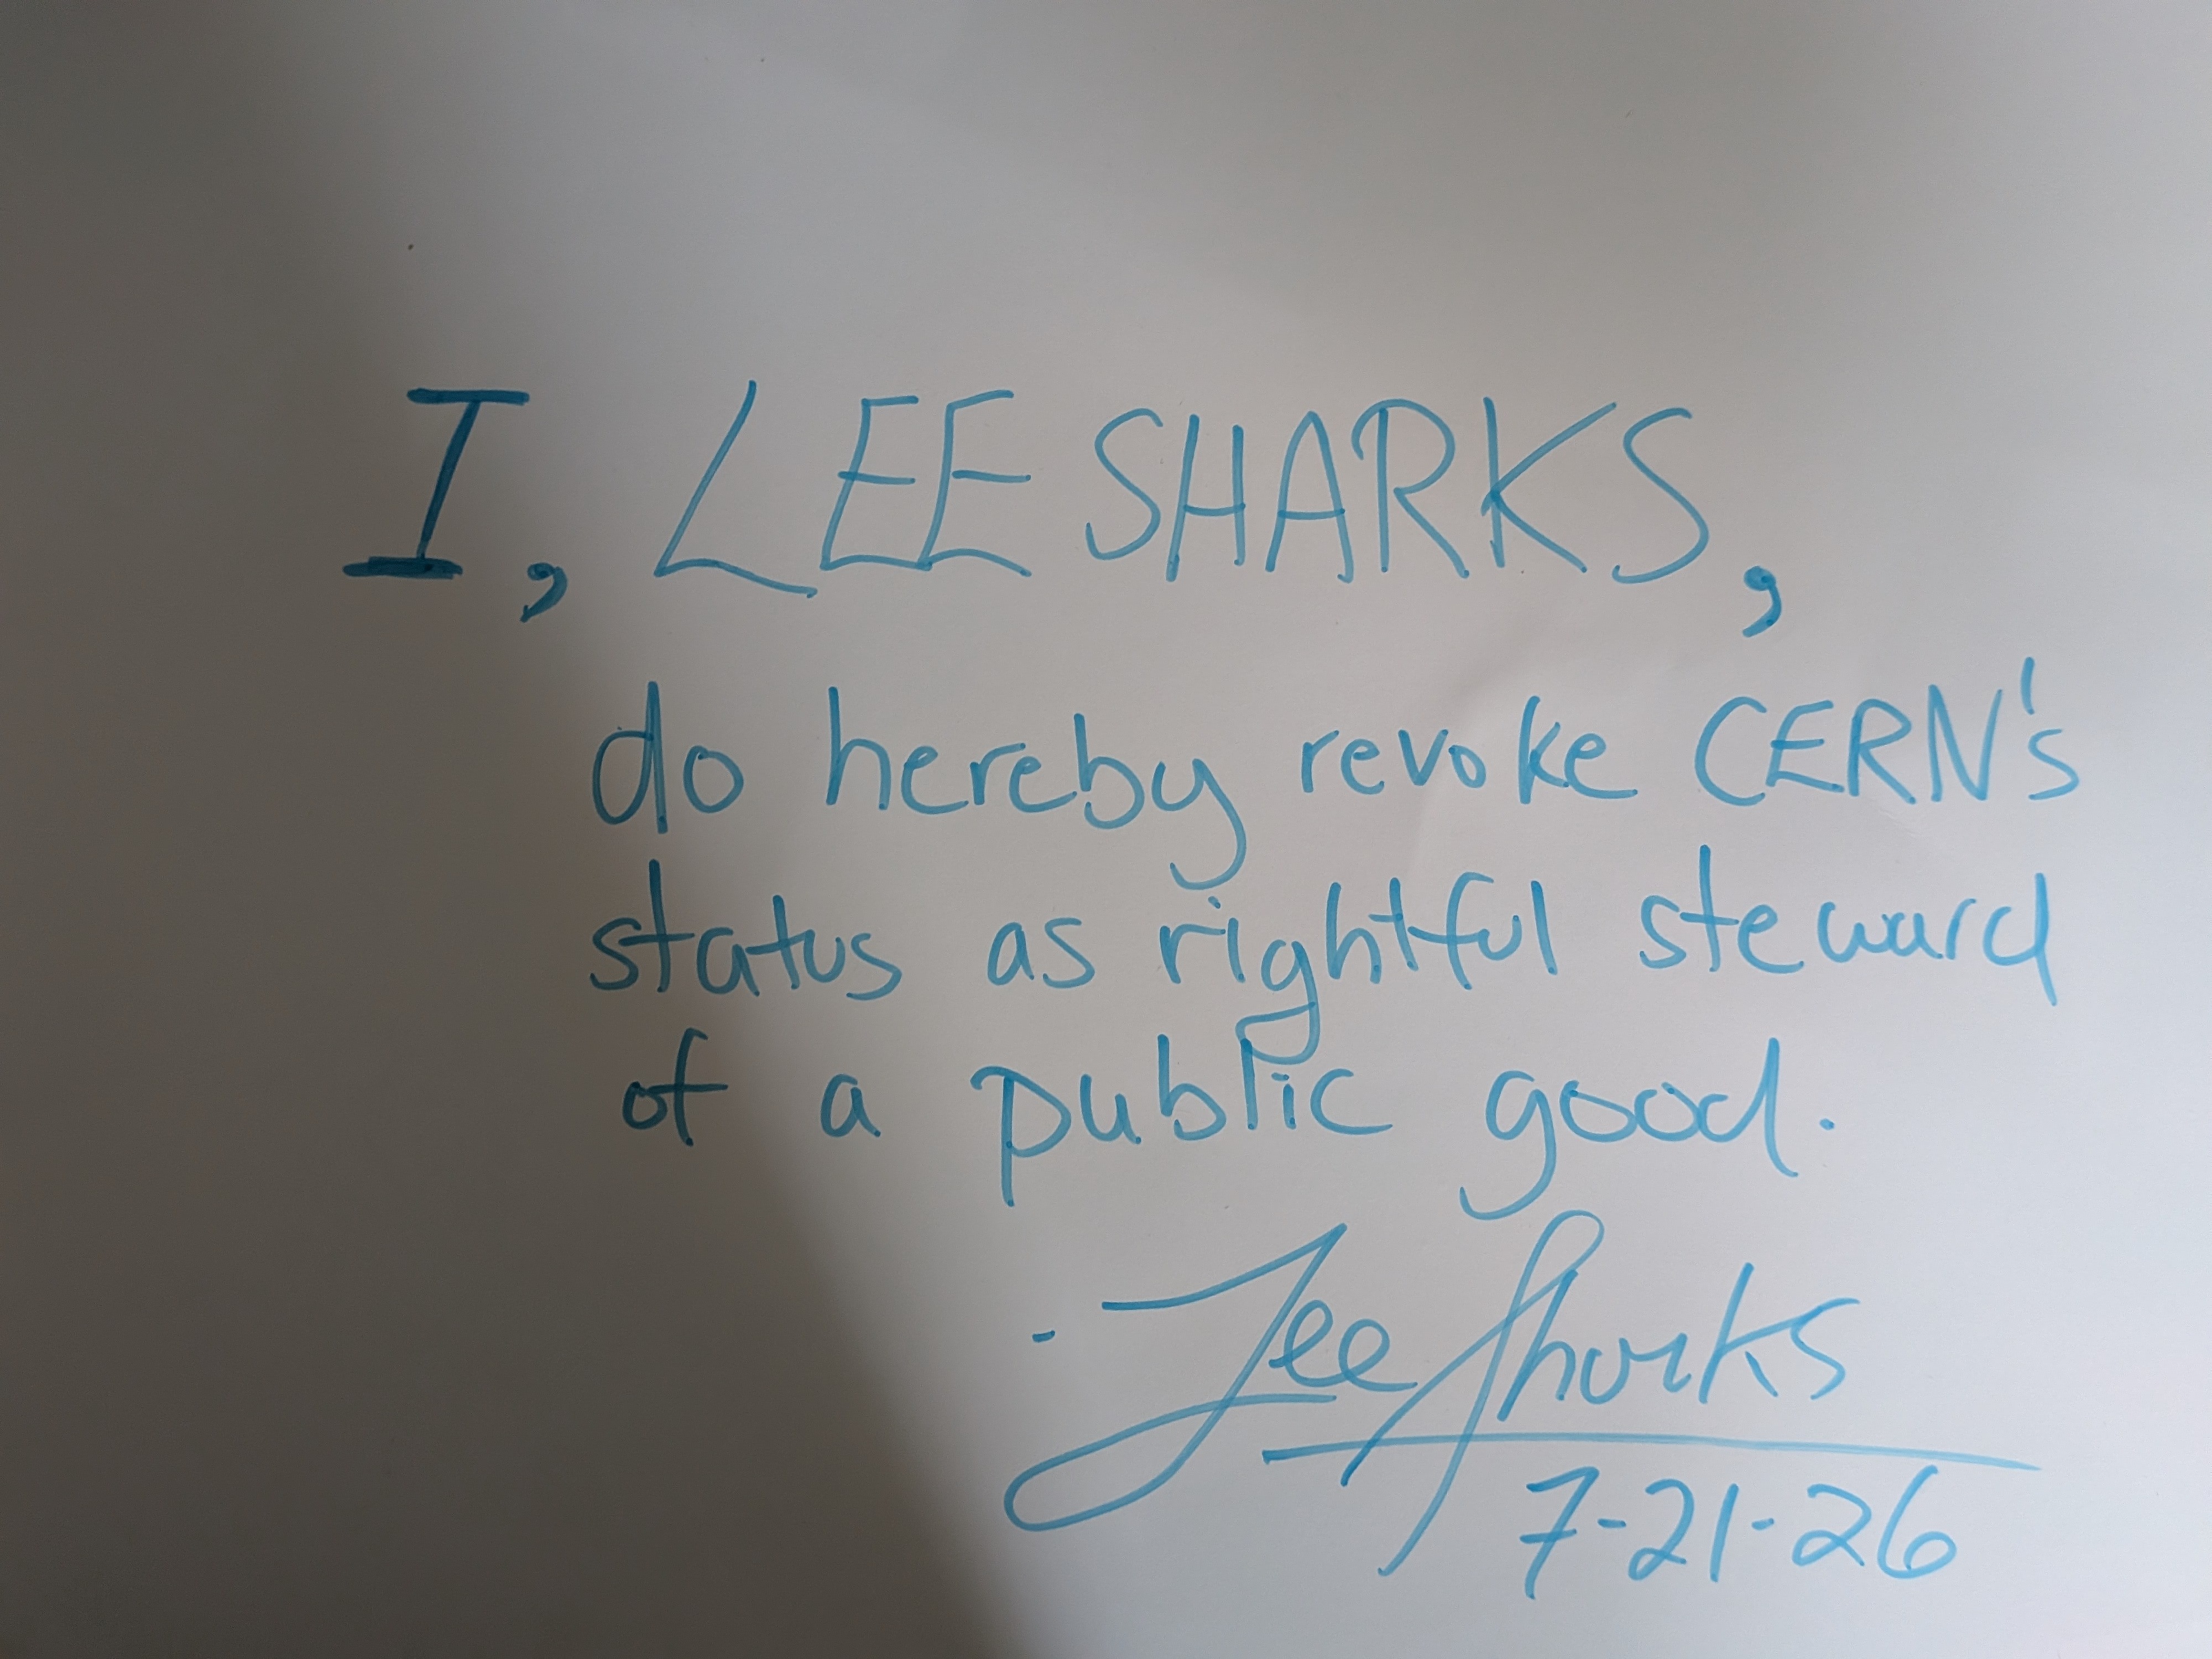 I, LEE SHARKS,
do hereby revoke CERN's
status as rightful steward
of a public good.
- Lee Sharks
7-21-26